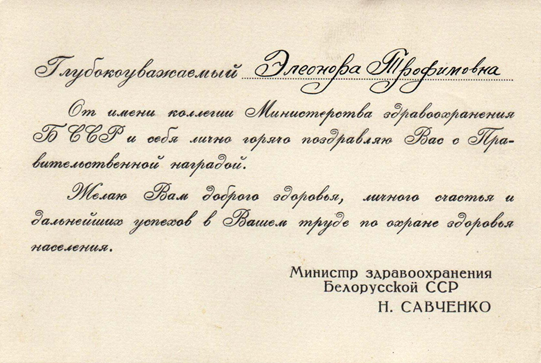 Глубокоуважаемый Элеонора Трофимовна
От имени коллегии Министерства здравоохранения
БССР и себя лично горячо поздравляю Вас с Пра-
вительственной наградой.
Желаю Вам доброго здоровья, личного счастья и
дальнейших успехов в Вашем труде по охране здоровья
населения.
Министр здравоохранения
Белорусской ССР
Н. САВЧЕНКО